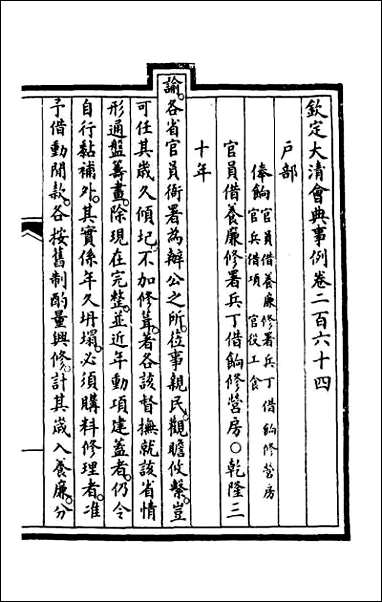 欽定大清會典事例卷二百六十四
戶部
俸餉官員借養廉修署兵丁借餉修營房
官兵借項 官役工食
官員借養廉修署兵丁借餉修營房○乾隆三
十年
諭各省官員衙署為辦公之所莅事親民觀瞻攸繫豈
可任其歲久傾圮不加修葺著各該督撫就該省情
形通盤籌畫除現在完整並近年動項建蓋者仍令
自行黏補外其實係年久坍塌必須購料修理者准
予借動閒款各按舊制酌量興修計其歲入養廉分